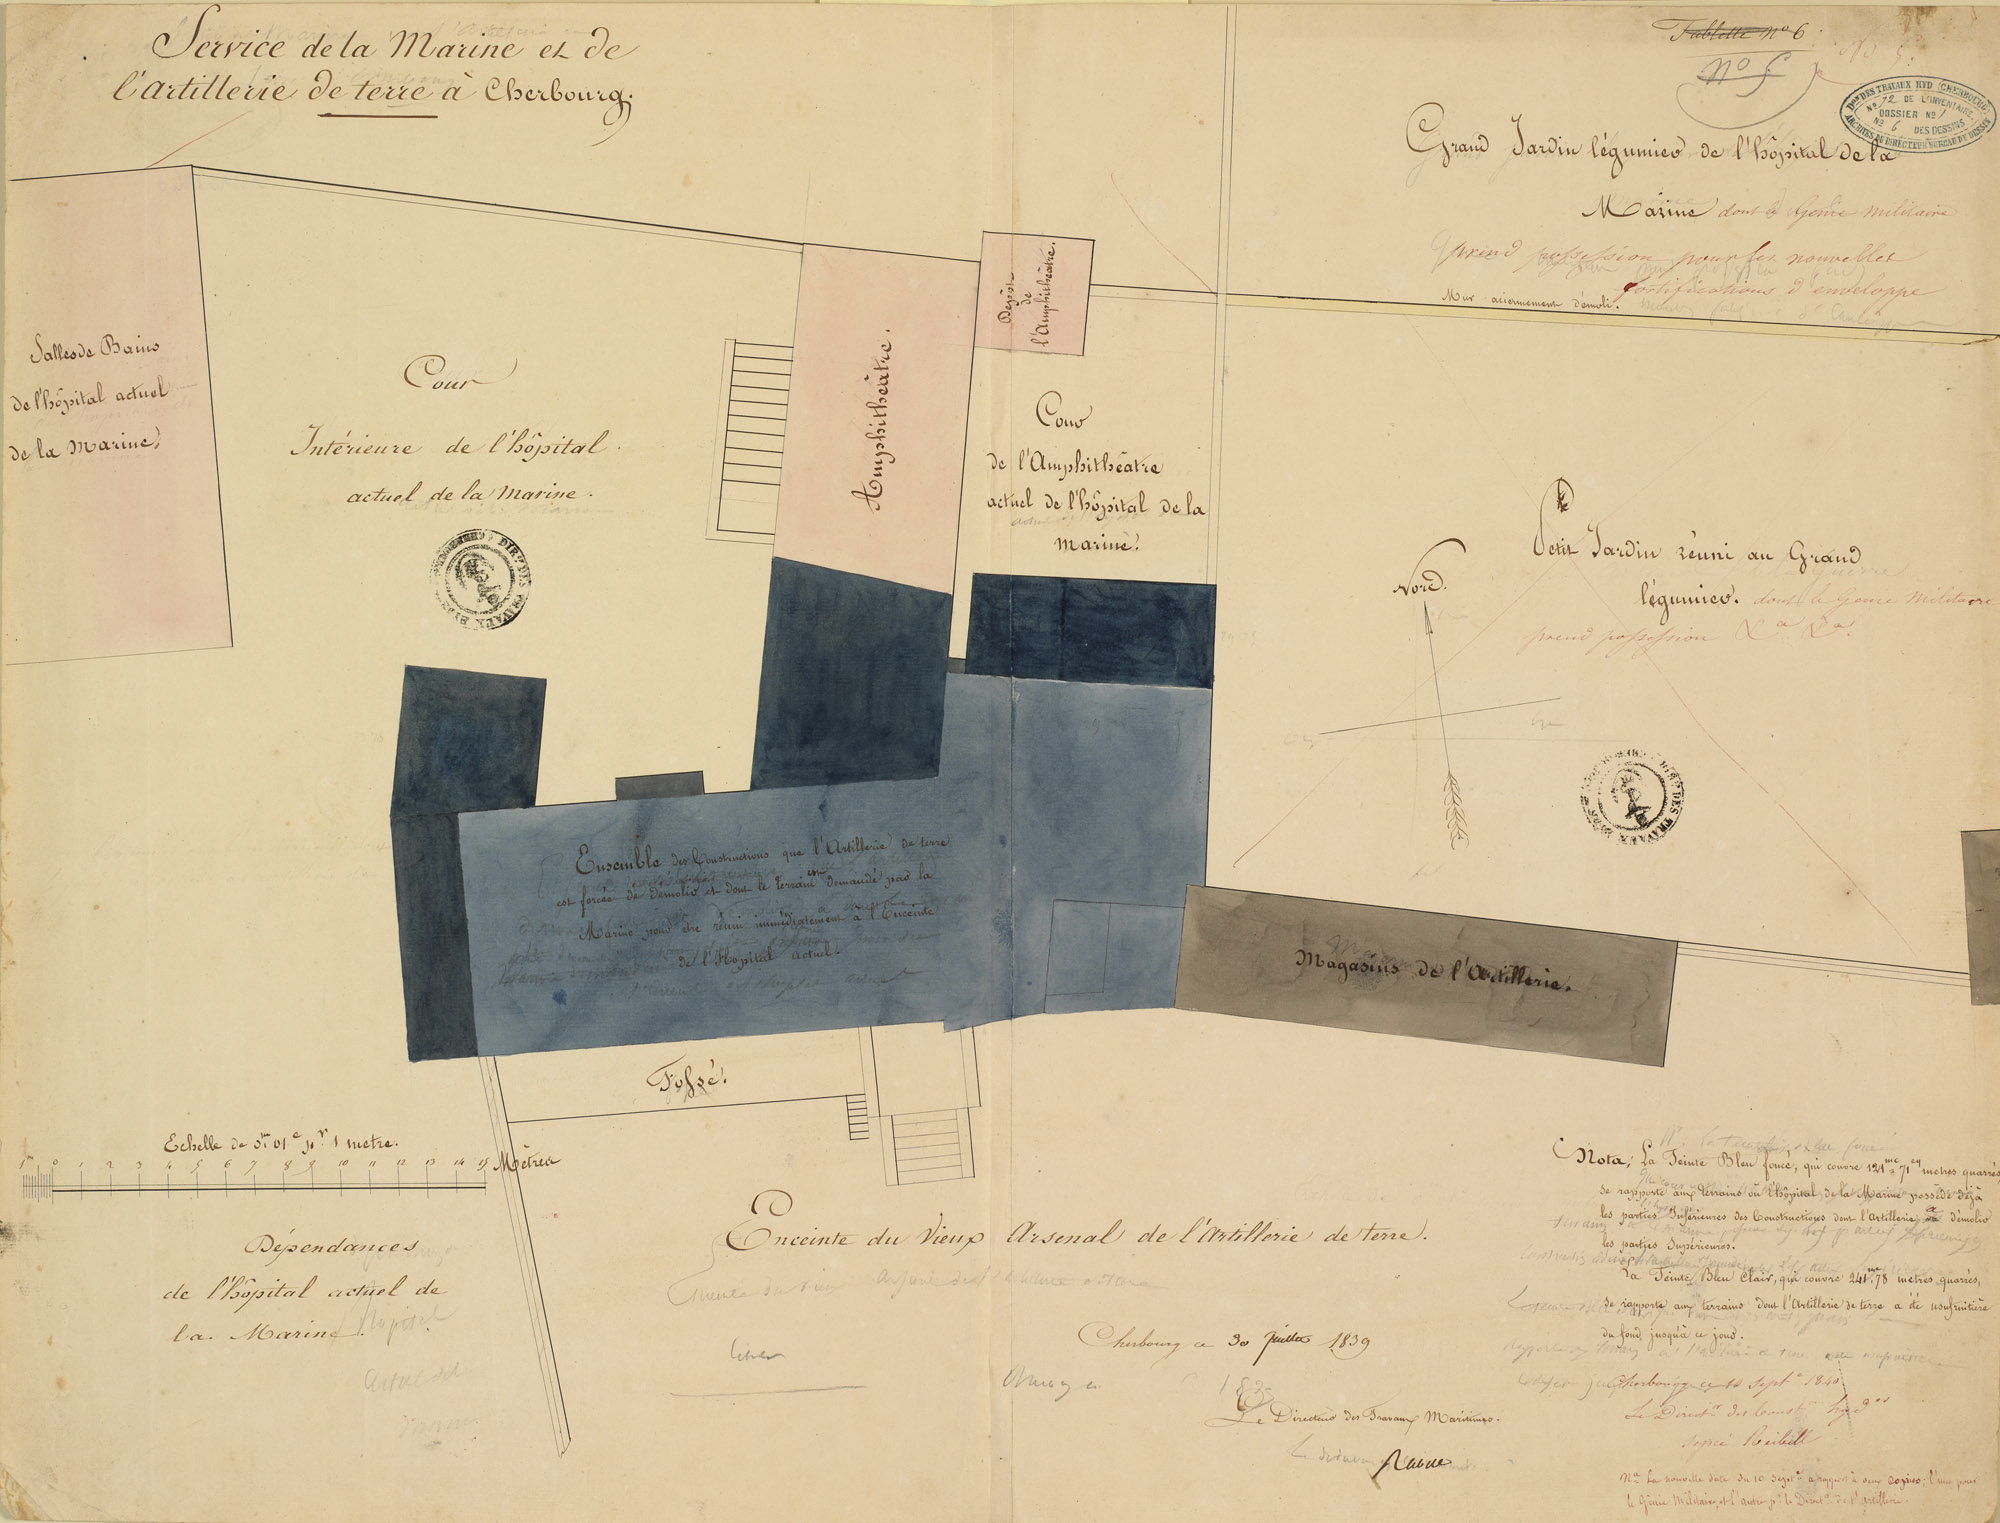 Service de la Marine et de
l'artillerie de terre à Cherbourg.
Tablette N° 6
N° 5
DON DES TRAVAUX HYD (CHERBOURG)
N° 12 DE L'INVENTAIRE
DOSSIER N° 1
N° 6 DES DESSINS
ARCHIVES DU DIRECTEUR BUREAU DU DESSIN
Grand Jardin légumier de l'hôpital de la
Marine dont le Génie militaire
prend possession pour ses nouvelles
fortifications d'enveloppe
Mur aciennement démoli.
Salles de Bains
de l'hôpital actuel
de la Marine.
Cour
Intérieure de l'hôpital
actuel de la Marine.
Amphithéâtre.
Dépôt
de
l'Amphithéâtre.
Cour
de l'Amphithéâtre
actuel de l'hôpital de la
marine.
Nord.
Petit Jardin réuni au Grand
légumier. dont le Génie Militaire
prend possession
Ensemble des Constructions que l'Artillerie de terre
est forcée de démolir et dont le terrain est demandé par la
Marine pour être réuni immédiatement à l'Enceinte
de l'Hôpital actuel.
Magasins de l'Artillerie.
Fossé.
Echelle de 0m 01c pr 1 metre.
1m 0 1 2 3 4 5 6 7 8 9 10 11 12 13 14 15 Mètres
Dépendances
de l'hôpital actuel de
la Marine.
Enceinte du Vieux Arsenal de l'Artillerie de terre.
Cherbourg ce 30 juillet 1839
Le Directeur des Travaux Maritimes.
Nota; La Teinte Bleu foncé, qui couvre 121mc 71 metres quarrés
se rapporte aux terrains où l'hôpital de la Marine possède déjà
les parties Inférieures des Constructions dont l'Artillerie a démolir
les parties Supérieures.
La Teinte Bleu Clair, qui couvre 241m.78 metres quarrés,
se rapporte aux terrains dont l'Artillerie de terre a été usufruitière
du fond jusqu'à ce jour.
Cherbourg ce 10 Septre 1840
Le Directr des Constns hyd
signé Reibell
Na La nouvelle date du 10 Septre a rapport à deux Copies; l'une pour
le Génie Militaire, et l'autre pr la Directn de l'artillerie.